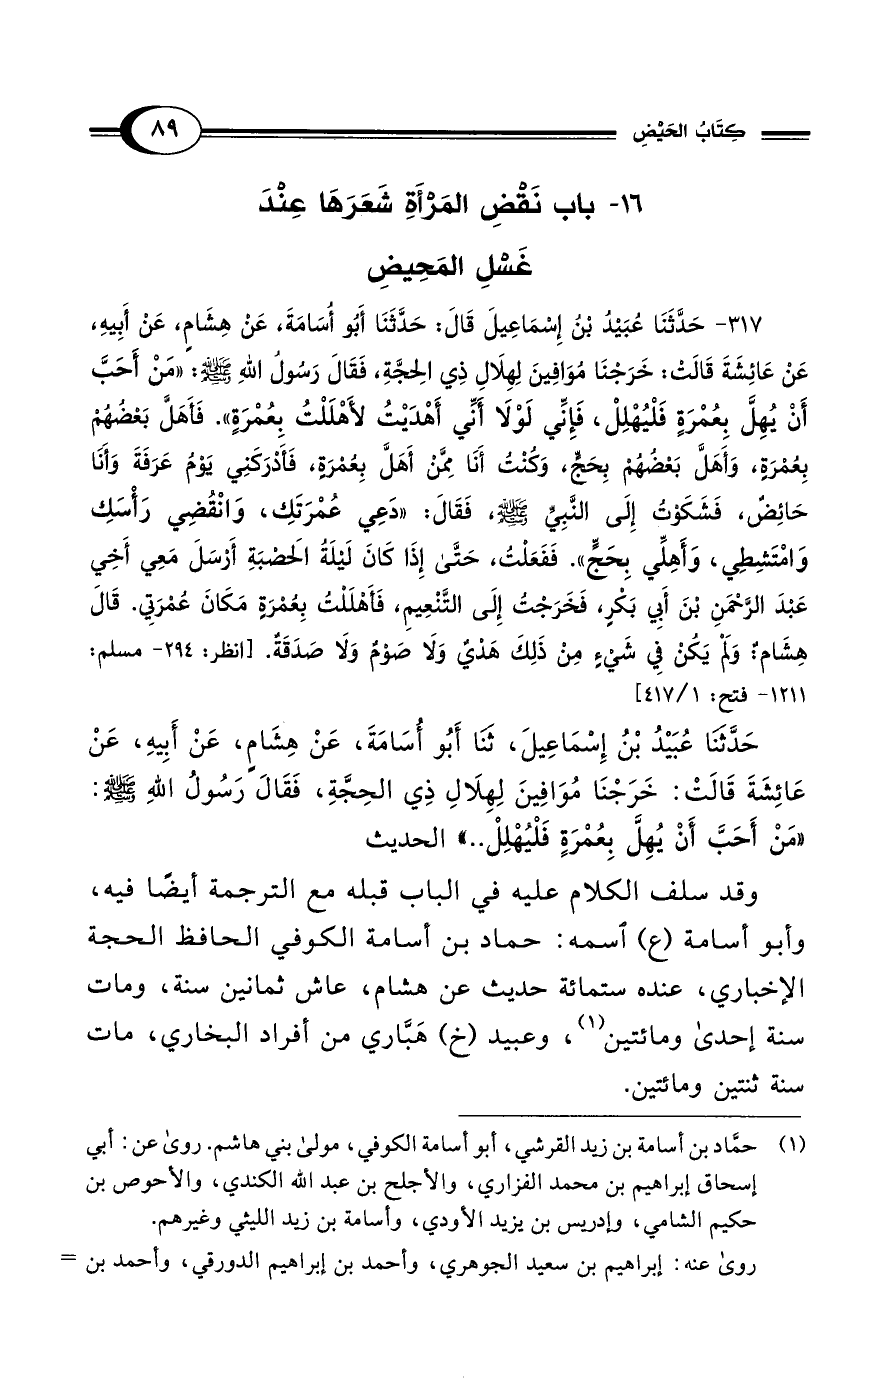 كِتَابُ الحَيْضِ ٨٩
١٦- باب نَقْضِ المَرْأَةِ شَعَرَهَا عِنْدَ
غَسْلِ المَحِيضِ
٣١٧- حَدَّثَنَا عُبَيْدُ بْنُ إِسْمَاعِيلَ قَالَ: حَدَّثَنَا أَبُو أُسَامَةَ، عَنْ هِشَامٍ، عَنْ أَبِيهِ،
عَنْ عَائِشَةَ قَالَتْ: خَرَجْنَا مُوَافِينَ لِهِلَالِ ذِي الحِجَّةِ، فَقَالَ رَسُولُ اللهِ ﷺ: «مَنْ أَحَبَّ
أَنْ يُهِلَّ بِعُمْرَةٍ فَلْيُهْلِلْ، فَإِنِّي لَوْلَا أَنِّي أَهْدَيْتُ لأَهْلَلْتُ بِعُمْرَةٍ». فَأَهَلَّ بَعْضُهُمْ
بِعُمْرَةٍ، وَأَهَلَّ بَعْضُهُمْ بِحَجٍّ، وَكُنْتُ أَنَا مِمَّنْ أَهَلَّ بِعُمْرَةٍ، فَأَدْرَكَنِي يَوْمُ عَرَفَةَ وَأَنَا
حَائِضٌ، فَشَكَوْتُ إِلَى النَّبِيِّ ﷺ، فَقَالَ: «دَعِي عُمْرَتَكِ، وَانْقُضِي رَأْسَكِ
وَامْتَشِطِي، وَأَهِلِّي بِحَجٍّ». فَفَعَلْتُ، حَتَّىٰ إِذَا كَانَ لَيْلَةُ الحَصْبَةِ أَرْسَلَ مَعِي أَخِي
عَبْدَ الرَّحْمَنِ بْنَ أَبِي بَكْرٍ، فَخَرَجْتُ إِلَى التَّنْعِيمِ، فَأَهْلَلْتُ بِعُمْرَةٍ مَكَانَ عُمْرَتِي. قَالَ
هِشَامٌ: وَلَمْ يَكُنْ فِي شَيْءٍ مِنْ ذَلِكَ هَدْيٌ وَلَا صَوْمٌ وَلَا صَدَقَةٌ. [انظر: ٢٩٤- مسلم:
١٢١١- فتح: ١/ ٤١٧]
حَدَّثَنَا عُبَيْدُ بْنُ إِسْمَاعِيلَ، ثَنَا أَبُو أُسَامَةَ، عَنْ هِشَامٍ، عَنْ أَبِيهِ، عَنْ
عَائِشَةَ قَالَتْ: خَرَجْنَا مُوَافِينَ لِهِلَالِ ذِي الحِجَّةِ، فَقَالَ رَسُولُ اللهِ ﷺ:
«مَنْ أَحَبَّ أَنْ يُهِلَّ بِعُمْرَةٍ فَلْيُهْلِلْ..» الحديث
وقد سلف الكلام عليه في الباب قبله مع الترجمة أيضًا فيه،
وأبو أسامة (ع) ٱسمه: حماد بن أسامة الكوفي الحافظ الحجة
الإخباري، عنده ستمائة حديث عن هشام، عاش ثمانين سنة، ومات
سنة إحدىٰ ومائتين(١)، وعبيد (خ) هَبَّاري من أفراد البخاري، مات
سنة ثنتين ومائتين.
(١) حمَّاد بن أسامة بن زيد القرشي، أبو أسامة الكوفي، مولىٰ بني هاشم. روىٰ عن: أبي
إسحاق إبراهيم بن محمد الفزاري، والأجلح بن عبد الله الكندي، والأحوص بن
حكيم الشامي، وإدريس بن يزيد الأودي، وأسامة بن زيد الليثي وغيرهم.
روىٰ عنه: إبراهيم بن سعيد الجوهري، وأحمد بن إبراهيم الدورقي، وأحمد بن =